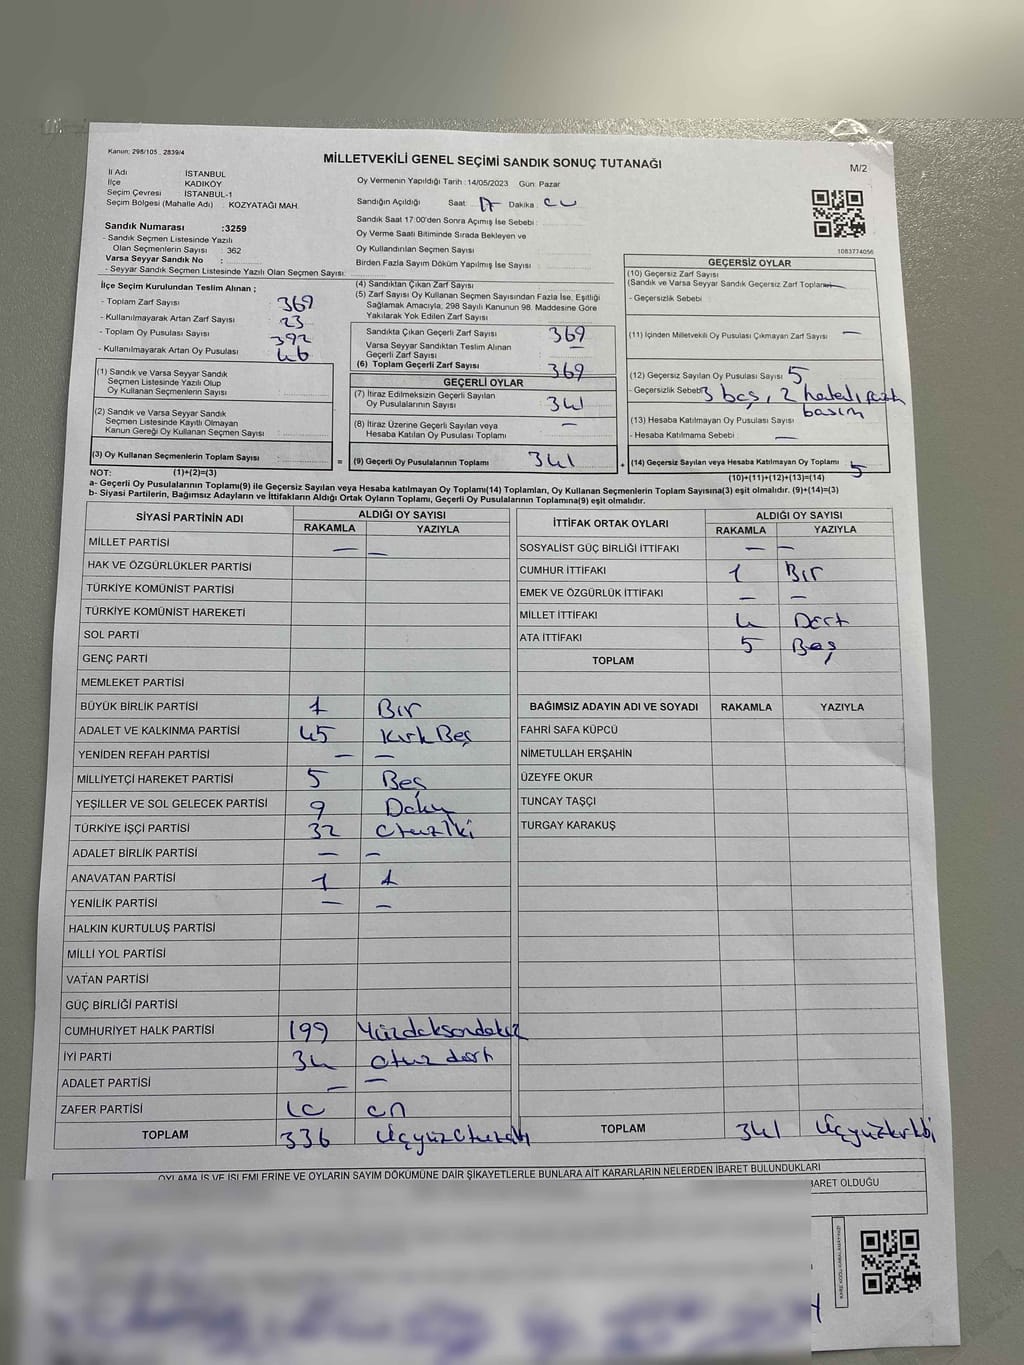 Kanun: 298/105 , 2839/4
MİLLETVEKİLİ GENEL SEÇİMİ SANDIK SONUÇ TUTANAĞI
M/2
İl Adı İSTANBUL
İlçe KADIKÖY
Seçim Çevresi İSTANBUL-1
Seçim Bölgesi (Mahalle Adı) : KOZYATAĞI MAH.
Oy Vermenin Yapıldığı Tarih : 14/05/2023 Gün: Pazar
Sandığın Açıldığı Saat 17 Dakika 00
Sandık Saat 17:00'den Sonra Açımış İse Sebebi :
Oy Verme Saati Bitiminde Sırada Bekleyen ve
Oy Kullandırılan Seçmen Sayısı
Birden Fazla Sayım Döküm Yapılmış İse Sayısı :
1083774056
Sandık Numarası :3259
- Sandık Seçmen Listesinde Yazılı
Olan Seçmenlerin Sayısı : 362
Varsa Seyyar Sandık No :
- Seyyar Sandık Seçmen Listesinde Yazılı Olan Seçmen Sayısı:
İlçe Seçim Kurulundan Teslim Alınan ;
- Toplam Zarf Sayısı 369
- Kullanılmayarak Artan Zarf Sayısı 23
- Toplam Oy Pusulası Sayısı 392
- Kullanılmayarak Artan Oy Pusulası 46
(1) Sandık ve Varsa Seyyar Sandık
Seçmen Listesinde Yazılı Olup
Oy Kullanan Seçmenlerin Sayısı
(2) Sandık ve Varsa Seyyar Sandık
Seçmen Listesinde Kayıtlı Olmayan
Kanun Gereği Oy Kullanan Seçmen Sayısı
(3) Oy Kullanan Seçmenlerin Toplam Sayısı =
(4) Sandıktan Çıkan Zarf Sayısı
(5) Zarf Sayısı Oy Kullanan Seçmen Sayısından Fazla İse, Eşitliği
Sağlamak Amacıyla, 298 Sayılı Kanunun 98. Maddesine Göre
Yakılarak Yok Edilen Zarf Sayısı
Sandıkta Çıkan Geçerli Zarf Sayısı 369
Varsa Seyyar Sandıktan Teslim Alınan
Geçerli Zarf Sayısı —
(6) Toplam Geçerli Zarf Sayısı 369
GEÇERLİ OYLAR
(7) İtiraz Edilmeksizin Geçerli Sayılan
Oy Pusulalarının Sayısı 341
(8) İtiraz Üzerine Geçerli Sayılan veya
Hesaba Katılan Oy Pusulası Toplamı —
(9) Geçerli Oy Pusulalarının Toplamı 341 +
GEÇERSİZ OYLAR
(10) Geçersiz Zarf Sayısı
(Sandık ve Varsa Seyyar Sandık Geçersiz Zarf Toplamı) —
- Geçersizlik Sebebi
(11) İçinden Milletvekili Oy Pusulası Çıkmayan Zarf Sayısı —
(12) Geçersiz Sayılan Oy Pusulası Sayısı 5
- Geçersizlik Sebebi 3 boş, 2 hatalı
basım
(13) Hesaba Katılmayan Oy Pusulası Sayısı
- Hesaba Katılmama Sebebi —
(14) Geçersiz Sayılan veya Hesaba Katılmayan Oy Toplamı 5
(10)+(11)+(12)+(13)=(14)
NOT: (1)+(2)=(3)
a- Geçerli Oy Pusulalarının Toplamı(9) ile Geçersiz Sayılan veya Hesaba katılmayan Oy Toplamı(14) Toplamları, Oy Kullanan Seçmenlerin Toplam Sayısına(3) eşit olmalıdır. (9)+(14)=(3)
b- Siyasi Partilerin, Bağımsız Adayların ve İttifakların Aldığı Ortak Oyların Toplamı, Geçerli Oy Pusulalarının Toplamına(9) eşit olmalıdır.
SİYASİ PARTİNİN ADI ALDIĞI OY SAYISI
RAKAMLA YAZIYLA
MİLLET PARTİSİ — —
HAK VE ÖZGÜRLÜKLER PARTİSİ
TÜRKİYE KOMÜNİST PARTİSİ
TÜRKİYE KOMÜNİST HAREKETİ
SOL PARTİ
GENÇ PARTİ
MEMLEKET PARTİSİ
BÜYÜK BİRLİK PARTİSİ 1 Bir
ADALET VE KALKINMA PARTİSİ 45 Kırk Beş
YENİDEN REFAH PARTİSİ — —
MİLLİYETÇİ HAREKET PARTİSİ 5 Beş
YEŞİLLER VE SOL GELECEK PARTİSİ 9 Dokuz
TÜRKİYE İŞÇİ PARTİSİ 32 otuz İki
ADALET BİRLİK PARTİSİ — —
ANAVATAN PARTİSİ 1 1
YENİLİK PARTİSİ — —
HALKIN KURTULUŞ PARTİSİ
MİLLİ YOL PARTİSİ
VATAN PARTİSİ
GÜÇ BİRLİĞİ PARTİSİ
CUMHURİYET HALK PARTİSİ 199 Yüzdoksandokuz
İYİ PARTİ 34 otuz dört
ADALET PARTİSİ — —
ZAFER PARTİSİ 10 on
TOPLAM 336 Üçyüzotuzaltı
İTTİFAK ORTAK OYLARI ALDIĞI OY SAYISI
RAKAMLA YAZIYLA
SOSYALİST GÜÇ BİRLİĞİ İTTİFAKI — —
CUMHUR İTTİFAKI 1 Bir
EMEK VE ÖZGÜRLÜK İTTİFAKI — —
MİLLET İTTİFAKI 4 Dört
ATA İTTİFAKI 5 Beş
TOPLAM
BAĞIMSIZ ADAYIN ADI VE SOYADI RAKAMLA YAZIYLA
FAHRİ SAFA KÜPCÜ
NİMETULLAH ERŞAHİN
ÜZEYFE OKUR
TUNCAY TAŞÇI
TURGAY KARAKUŞ
TOPLAM 341 Üçyüzkırkbir
OYLAMA İŞ VE İŞLEMLERİNE VE OYLARIN SAYIM DÖKÜMÜNE DAİR ŞİKAYETLERLE BUNLARA AİT KARARLARIN NELERDEN İBARET BULUNDUKLARI
İBARET OLDUĞU